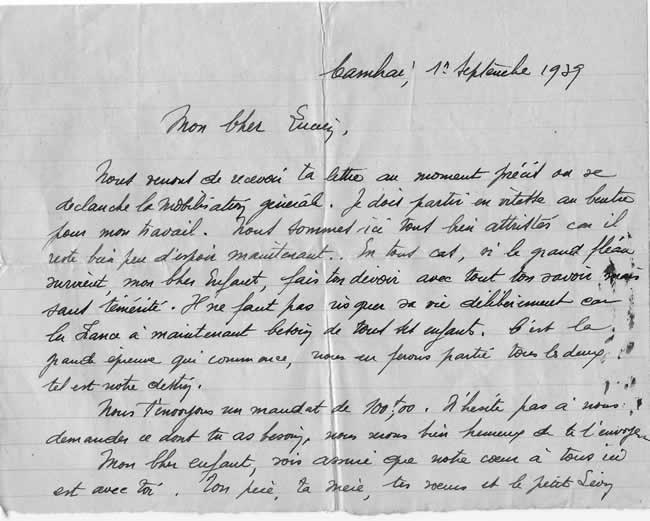 Cambrai, 1er Septembre 1939
Mon cher Lucien,
Nous venons de recevoir ta lettre au moment précis où se
déclanche la mobilisation générale. Je dois partir en vitesse au centre
pour mon travail. Nous sommes ici tous bien attristés car il
reste bien peu d'espoir maintenant.. En tous cas, si le grand fléau
survient, mon cher Enfant, fais ton devoir avec tout ton savoir mais
sans témérité. Il ne faut pas risquer sa vie délibérément car
la France à maintenant besoin de tous ses enfants. C'est la
grande épreuve qui commence, nous en ferons partie tous les deux,
tel est notre destin.
Nous t'envoyons un mandat de 100f,00. N'hésite pas à nous
demander ce dont tu as besoin, nous serons bien heureux de te l'envoyer
Mon cher enfant, sois assuré que notre cœur à tous ici
est avec toi. Ton père, ta mère, tes sœurs et le petit